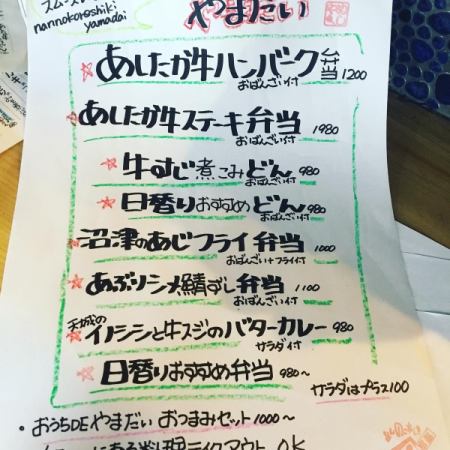 nannokoroshiki
yamadai
やまだい
あしたか牛ハンバーグ弁当 1200
おばんざい付
あしたか牛ステーキ弁当 1980
おばんざい付
牛すじ煮こみどん 980
おばんざい付
日替りおすすめどん 980
おばんざい付
沼津のあじフライ弁当 1000
おばんざい+フライ付
あぶりシメ鯖ずし弁当 1100
おばんざい付
天城のイノシシと牛スジのバターカレー 980
サラダ付
日替りおすすめ弁当 980~
サラダはプラス100
・おうちDEやまだい おつまみセット 1000~
テイクアウトOK